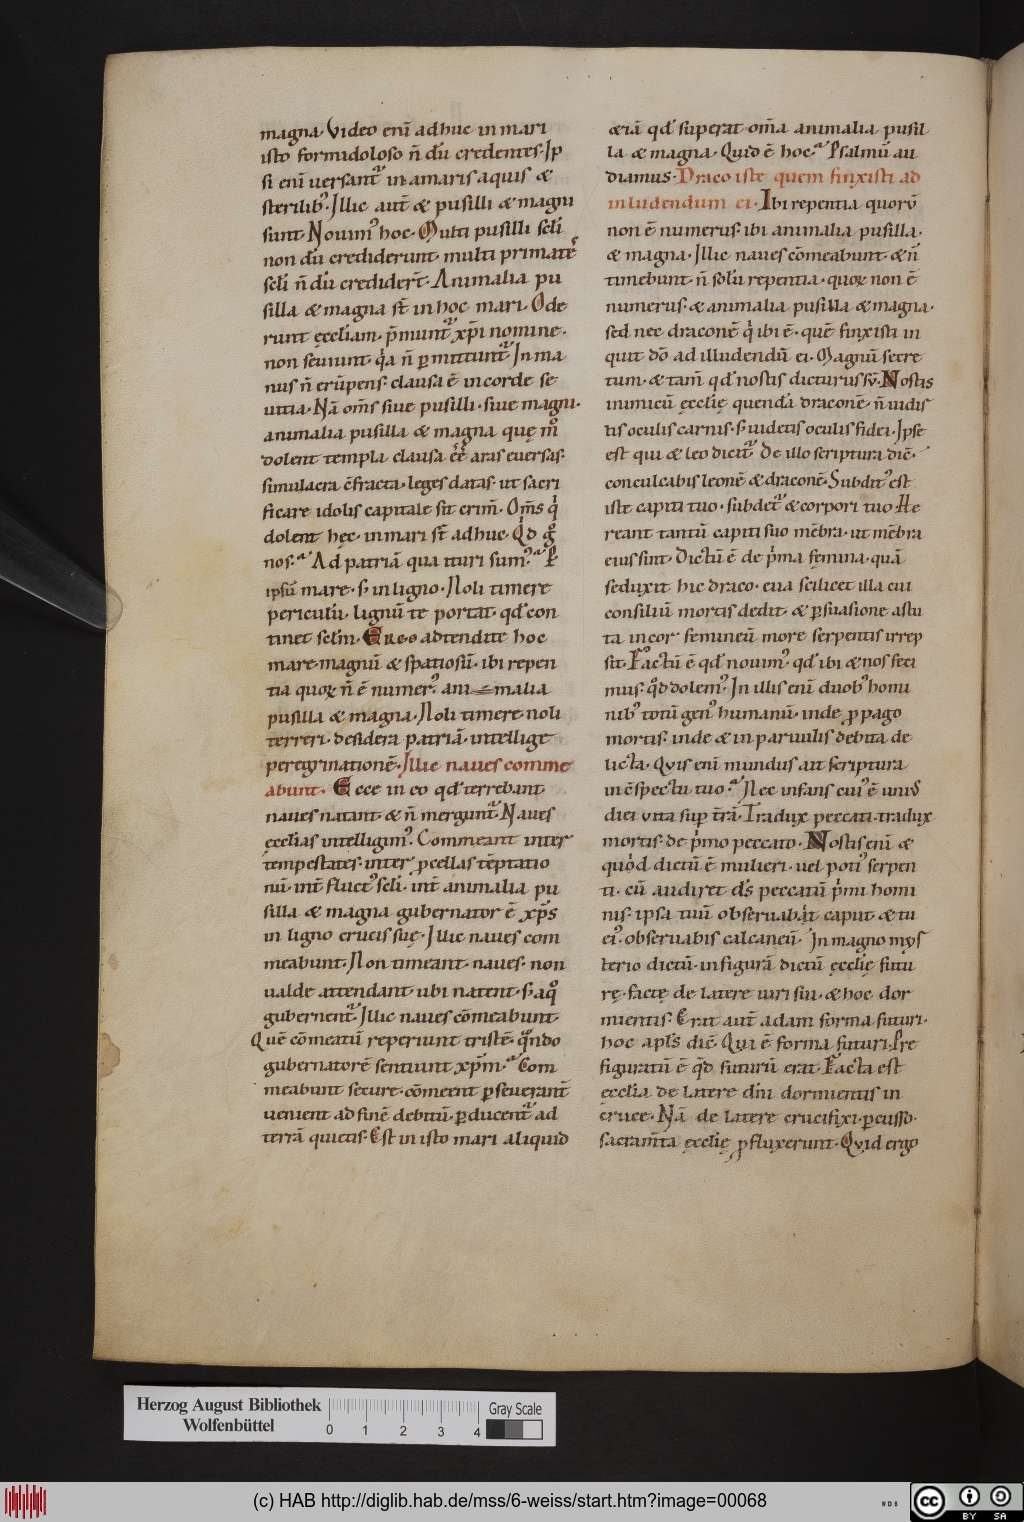 magna. Video enī adhuc in mari
isto formidoloso ñ dū credentes. Ip
si enī uersant᷑ in amaris aquis &
sterilib᷒. Illic aut̄ & pusilli & magni
sunt. Nouim᷒ hoc. Multi pusilli scl̄i
non dū crediderunt. multi primatē
scl̄i ñ dū credider̄t. Animalia pu
silla & magna st̄ in hoc mari. Ode
runt ęccl̄iam. p̄munt᷑ xp̄i nomine.
non seuiunt. qa ñ ꝑmittunt᷑. In ma
nus ñ erūpens. clausa ē in corde se
uitia. Nā om̄s siue pusilli. siue magni.
animalia pusilla & magna quę m̊
dolent templa clausa ēē aras euersas.
simulacra c̄fracta. leges datas. ut sacri
ficare idolis capitale sit crim̄. Om̄s q̇
dolent hęc. in mari st̄ adhuc. Qd g̊
nos. Ad patriā qua ituri sum᷒. P
ipsū mare. s. in ligno. Noli timere
periculū. lignū te portat. qd̄ con
tinet scl̄m. Ergo adtendite hoc
mare magnū & spatiosū. ibi repen
tia quoꝝ ñ ē numer᷒. ani malia
pusilla & magna. Noli timere noli
terreri. desidera patriā. intellige
peregrinationē. Illic naues comme
abunt. Ecce in eo qd̄ terrebant
naues natant & ñ mergunt᷑. Naues
ęcclias intelligim᷒. Commeant inter
tempestates. inter ꝓcellas tēptatio
nū. int̄ fluct᷒ scl̄i. int̄ animalia pu
silla & magna gubernator ē xp̄s
in ligno crucis suę. Illic naues com
meabunt. Non timeant naues. non
ualde attendant ubi natent. s. a quo
gubernent᷑. Illic naues cōmeabunt.
Quē cōmeatū reperiunt tristē. qndo
gubernatorē sentiunt xp̄m. Com
meabunt secure. cōmeent ꝑseuerant̄
uenient ad finē debitū. ꝑducent᷑ ad
terrā quietis. Est in isto mari aliquid
&iā qd̄ superat om̄a animalia pusil
la & magna. Quid ē hoc. Psalmū au
diamus. Draco iste quem finxisti ad
inludendum ei. Ibi repentia quorū
non ē numerus. ibi animalia pusilla.
& magna. Illic naues cōmeabunt. & ñ
timebunt. ñ solū repentia. quoꝝ non ē
numerus. & animalia pusilla & magna.
sed nec draconē q̇ ibi ē. quē finxisti in
quit dō ad illudendū ei. Magnū secre
tum. & tam̄ qd̄ nostis dicturus sū. Nostis
inimicū ęcclię quendā draconē. ñ uidis
tis oculis carnis. s. uidetis oculis fidei. Ipse
est qui & leo dicit᷑. De illo scriptura dic̄.
conculcabis leonē & draconē. Subdit᷒ est
iste capiti tuo. subdet᷑ & corpori tuo. He
reant tantū capiti suo mēbra. ut mēbra
eius sint. Dictū ē de ṗma femina. quā
seduxit hic draco. eua scilicet illa cui
consiliū mortis dedit. & ꝑsuasione astu
ta in cor femineū more serpentis irrep
sit. Factū ē qd̄ nouim᷒. qd̄ ibi & nos feci
mus. qd dolem᷒. In illis enī duob᷒ homi
nib᷒ totū gen᷒ humanū. inde ꝓpago
mortis. inde & in paruulis debita de
licta. Quis enī mundus ait scriptura
in c̄spectu tuo. Nec infans cui᷒ ē uni᷒
diei uita sup t̄rā. Tradux peccati. tradux
mortis. de ṗmo peccato. Nostis enī &
quod dictū ē mulieri. uel poti᷒ serpen
ti. cū audiret d̄s peccatū ṗmi homi
nis. ipsa tuū obseruabit caput & tu
ei᷒. obseruabis calcaneū. In magno mys
terio dictū. in figurā dictū ęcclię futu
rę. factę de latere uiri sui. & hoc dor
mientis. Erat aut̄ adam forma futuri.
hoc apl̄s dic̄. Qui ē forma futuri. Pre
figuratū ē qd̄ futurū erat. Facta est
ęcclia de latere dn̄i dormientis in
cruce. Nā de latere crucifixi ꝑcusso.
sacram̄ta ęcclię ꝓfluxerunt. Quid ergo
Herzog August Bibliothek
Wolfenbüttel
0 1 2 3 4
Gray Scale
(c) HAB http://diglib.hab.de/mss/6-weiss/start.htm?image=00068
cc BY SA